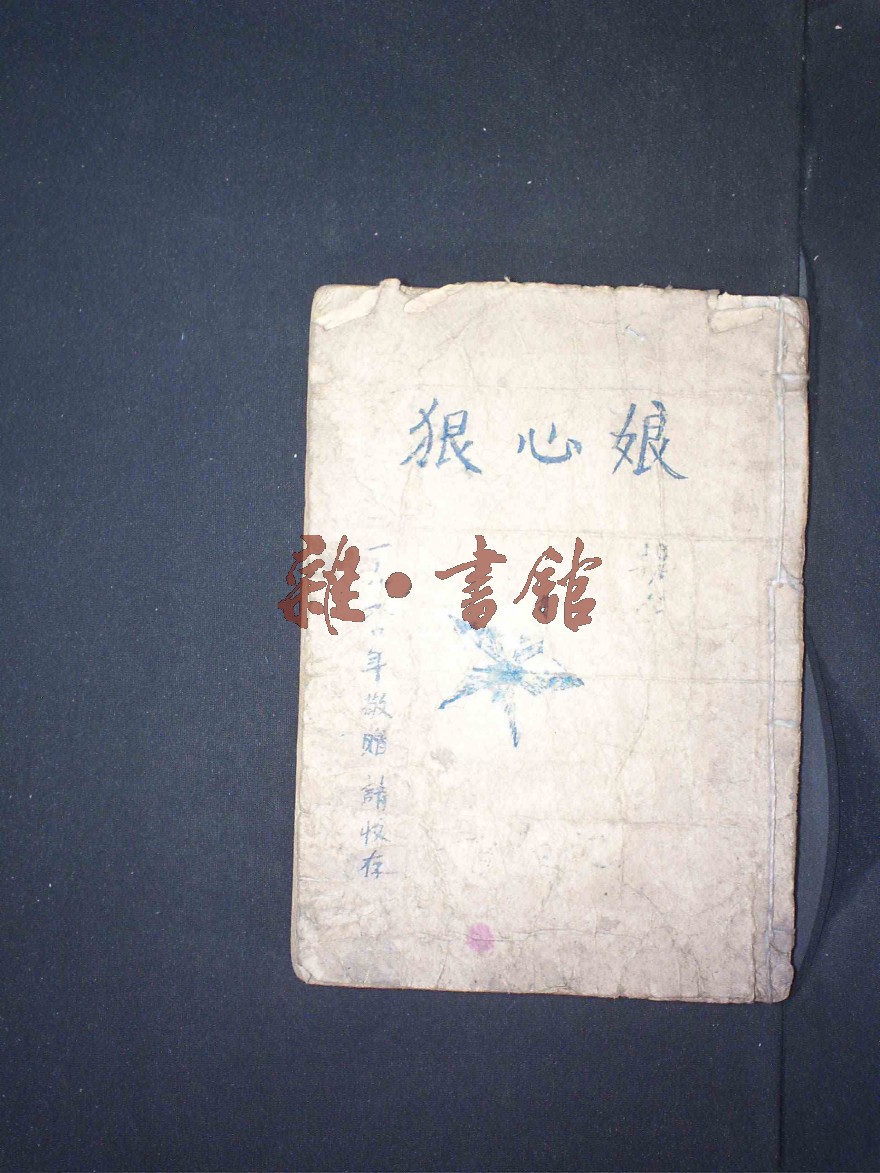 狠心娘
年敬贈 請收存
雜·書館